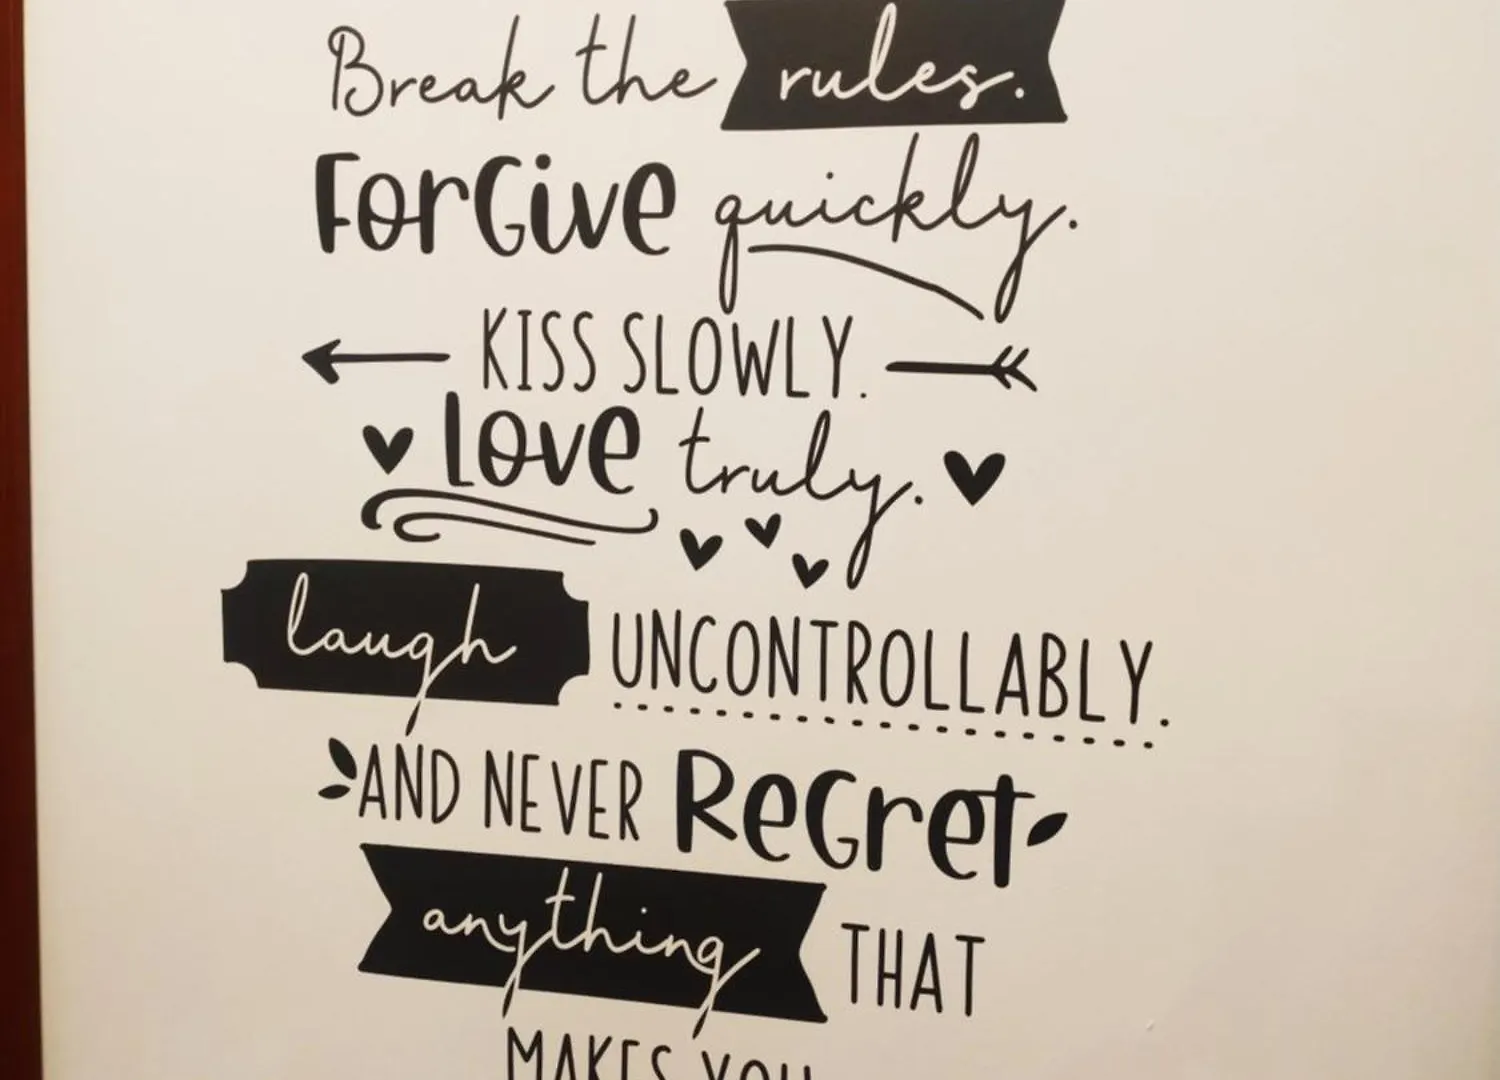 Break the rules.
ForGive quickly.
KISS SLOWLY.
Love truly.
laugh UNCONTROLLABLY.
AND NEVER ReGret
anything THAT
MAKES YOU